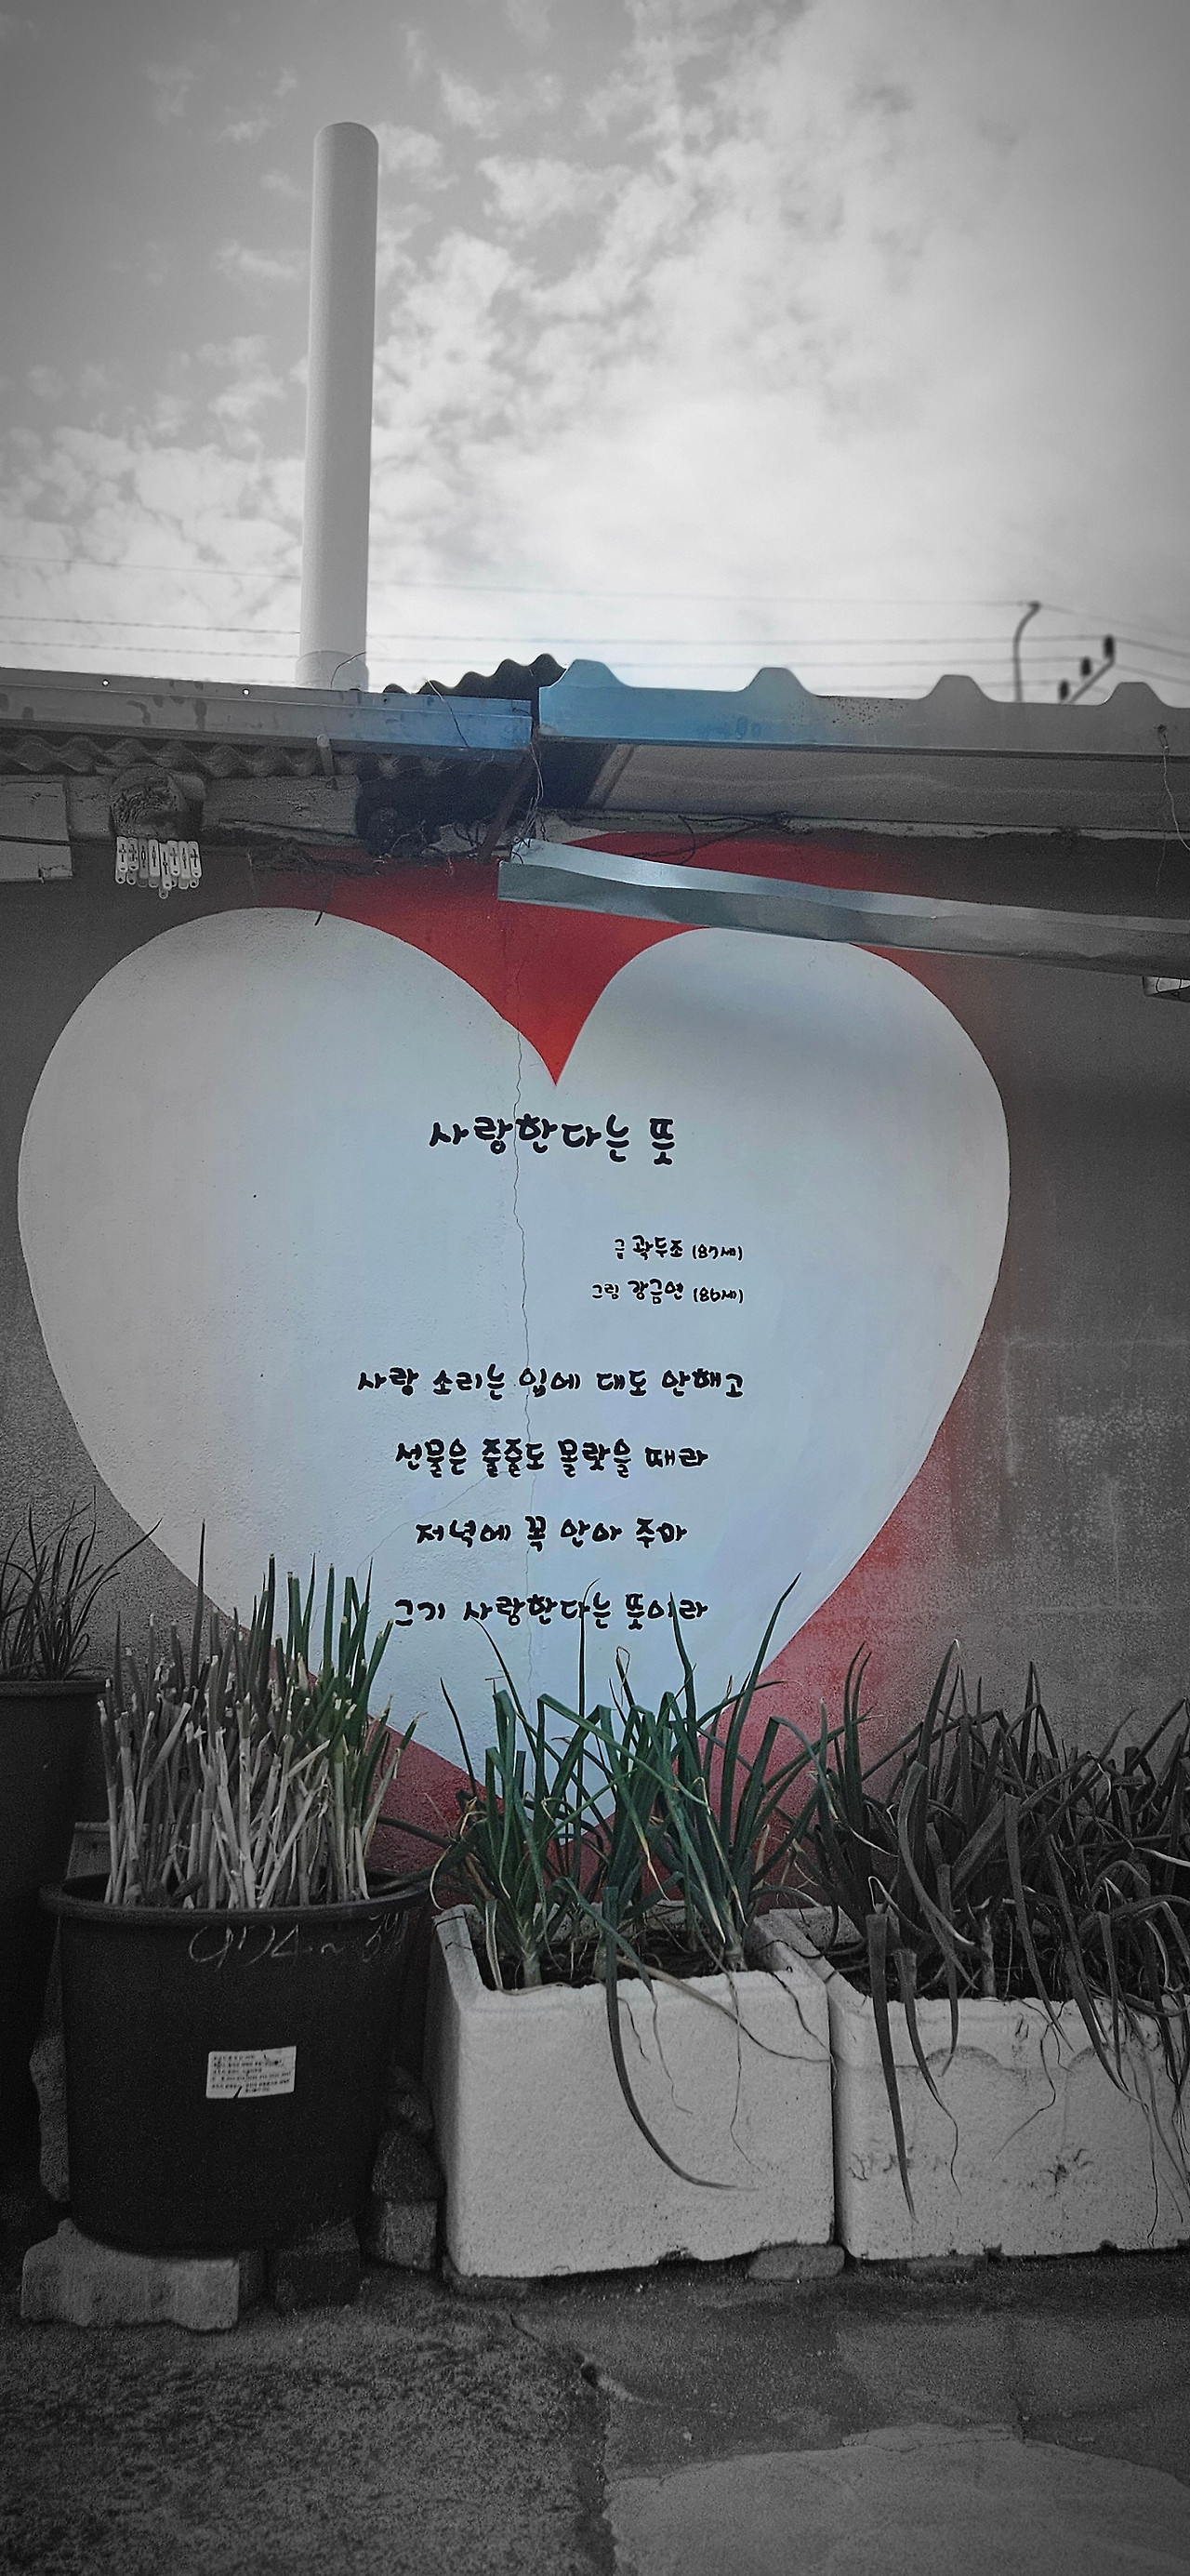 사랑한다는 뜻
글 곽두조 (87세)
그림 강금연 (86세)
사랑 소리는 입에 대도 안해고
선물은 줄줄도 몰랏을 때라
저녁에 꼭 안아 주마
그기 사랑한다는 뜻이라